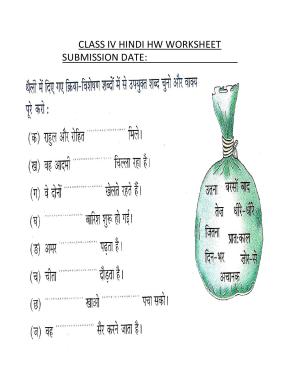 CLASS IV HINDI HW WORKSHEET
SUBMISSION DATE:
थैली में दिए गए क्रिया-विशेषण शब्दों में से उपयुक्त शब्द चुनो और वाक्य
पूरे करो :
(क) राहुल और रोहित .................. मिले।
(ख) वह आदमी .................. चिल्ला रहा है।
(ग) वे दोनों .................. खेलते रहते हैं।
(घ) .................. बारिश शुरू हो गई।
(ङ) अमर .................. पढ़ता है।
(च) चीता .................. दौड़ता है।
(छ) .................. खाओ .................. पचा सको।
(ज) वह .................. सैर करने जाता है।
उतना बरसों बाद
तेज़ धीरे-धीरे
जितना प्रातःकाल
दिन-भर ज़ोर-से
अचानक